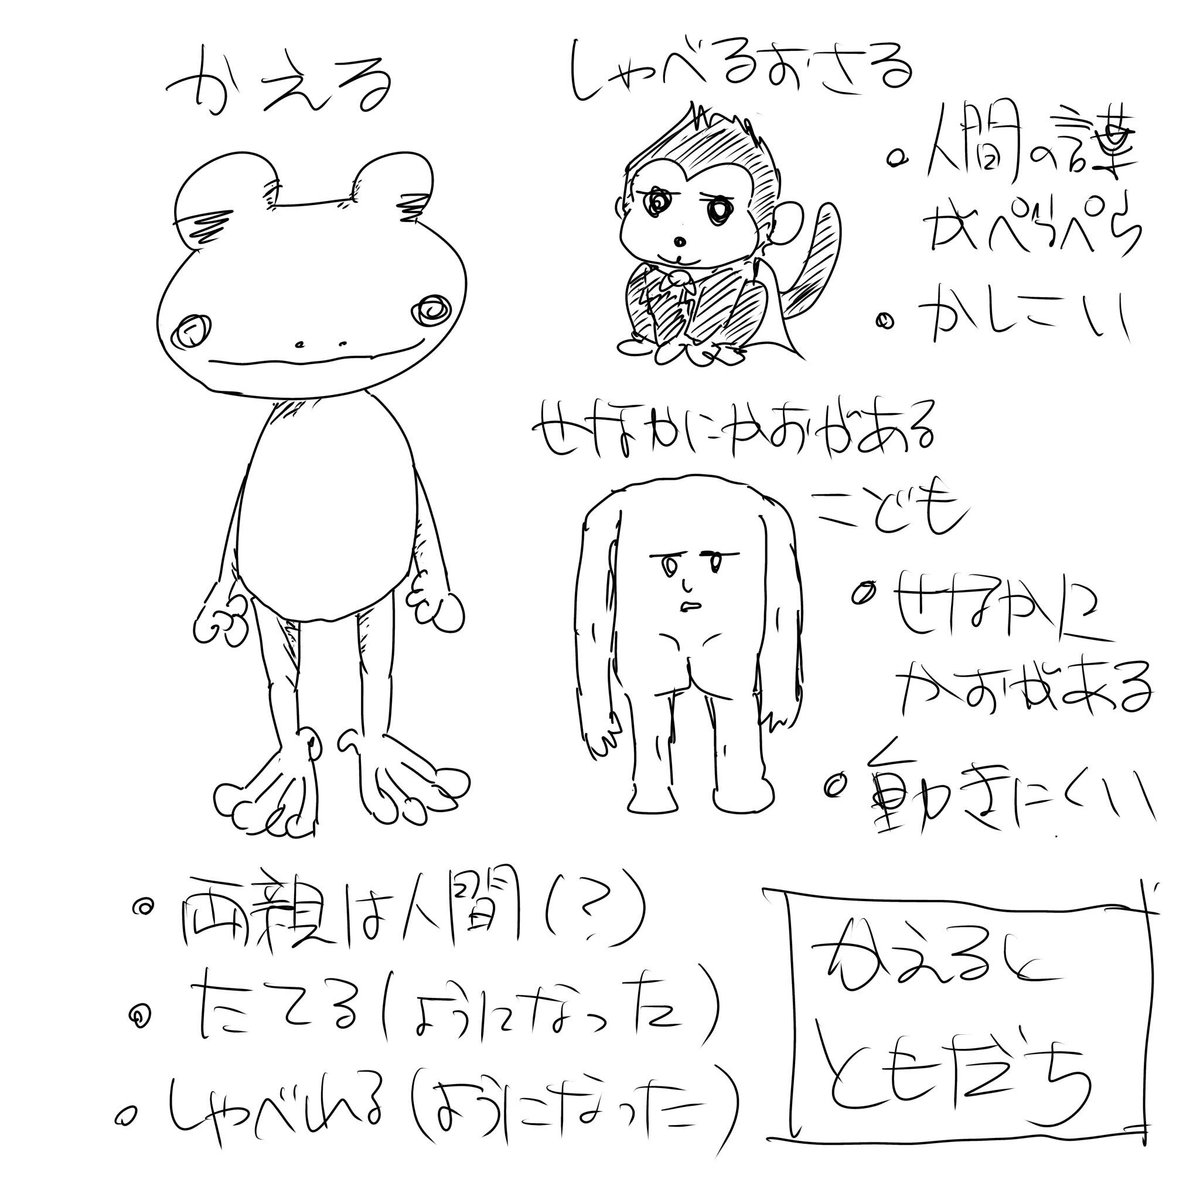 かえる
しゃべるおさる
人間の言葉
がぺらぺら
かしこい
せなかにかおがある
こども
せなかに
かおがある
動きにくい
両親は人間(?)
たてる(ようになった)
しゃべれる(ようになった)
かえると
ともだち